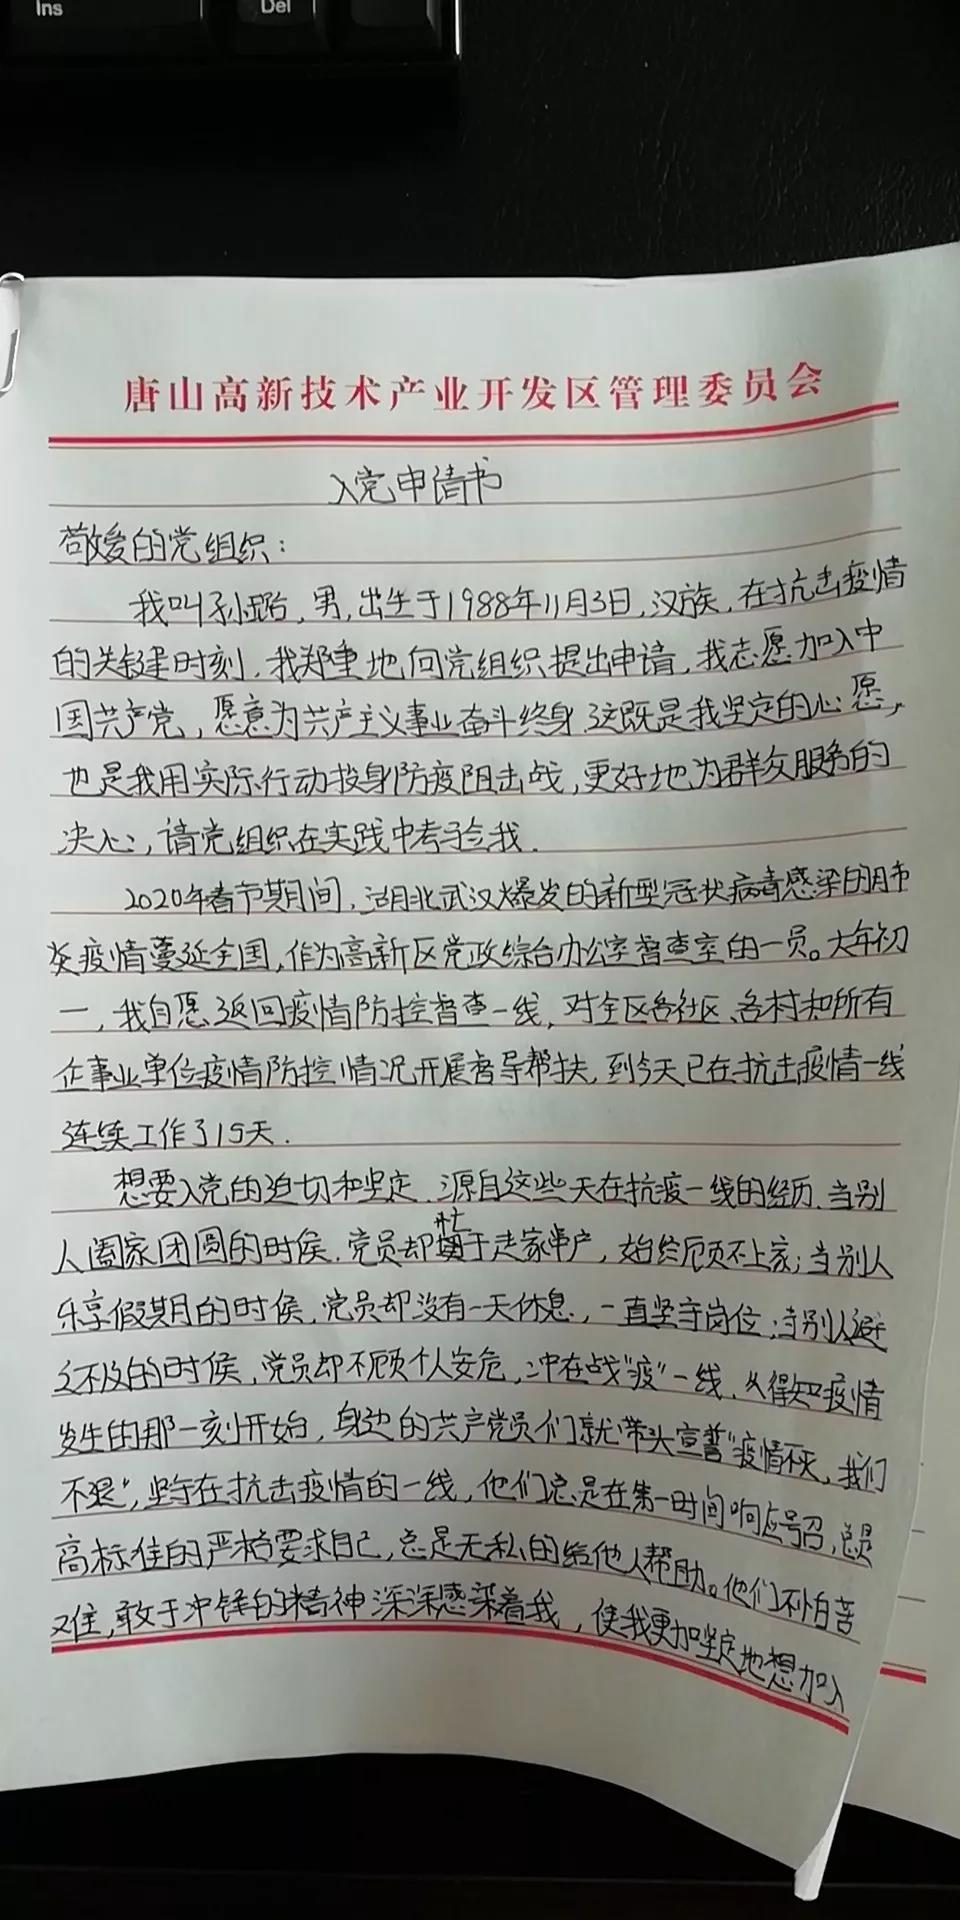 Ins
Del
唐山高新技术产业开发区管理委员会
入党申请书
敬爱的党组织：
我叫孙璐，男，出生于1988年11月3日，汉族，在抗击疫情
的关键时刻，我郑重地向党组织提出申请，我志愿加入中
国共产党，愿意为共产主义事业奋斗终身.这既是我坚定的心愿，
也是我用实际行动投身防疫阻击战，更好地为群众服务的
决心，请党组织在实践中考验我.
2020年春节期间，湖北武汉爆发的新型冠状病毒感染的肺
炎疫情蔓延全国，作为高新区党政综合办公室督查室的一员。大年初
一，我自愿返回疫情防控督查一线，对全区各社区、各村和所有
企事业单位疫情防控情况开展督导帮扶，到今天已在抗击疫情一线
连续工作了15天.
想要入党的迫切和坚定，源自这些天在抗疫一线的经历.当别
人阖家团圆的时候，党员却忙于走家串户，始终顾不上家；当别人
乐享假期的时候，党员却没有一天休息，一直坚守岗位；当别人避
之不及的时候，党员却不顾个人安危，冲在战“疫”一线.从得知疫情
发生的那一刻开始，身边的共产党员们就带头宣誓“疫情不灭，我们
不退”，坚守在抗击疫情的一线，他们总是在第一时间响应号召，总是
高标准的严格要求自己，总是无私的给他人帮助。他们不怕苦
难，敢于冲锋的精神深深感染着我，使我更加坚定地想加入